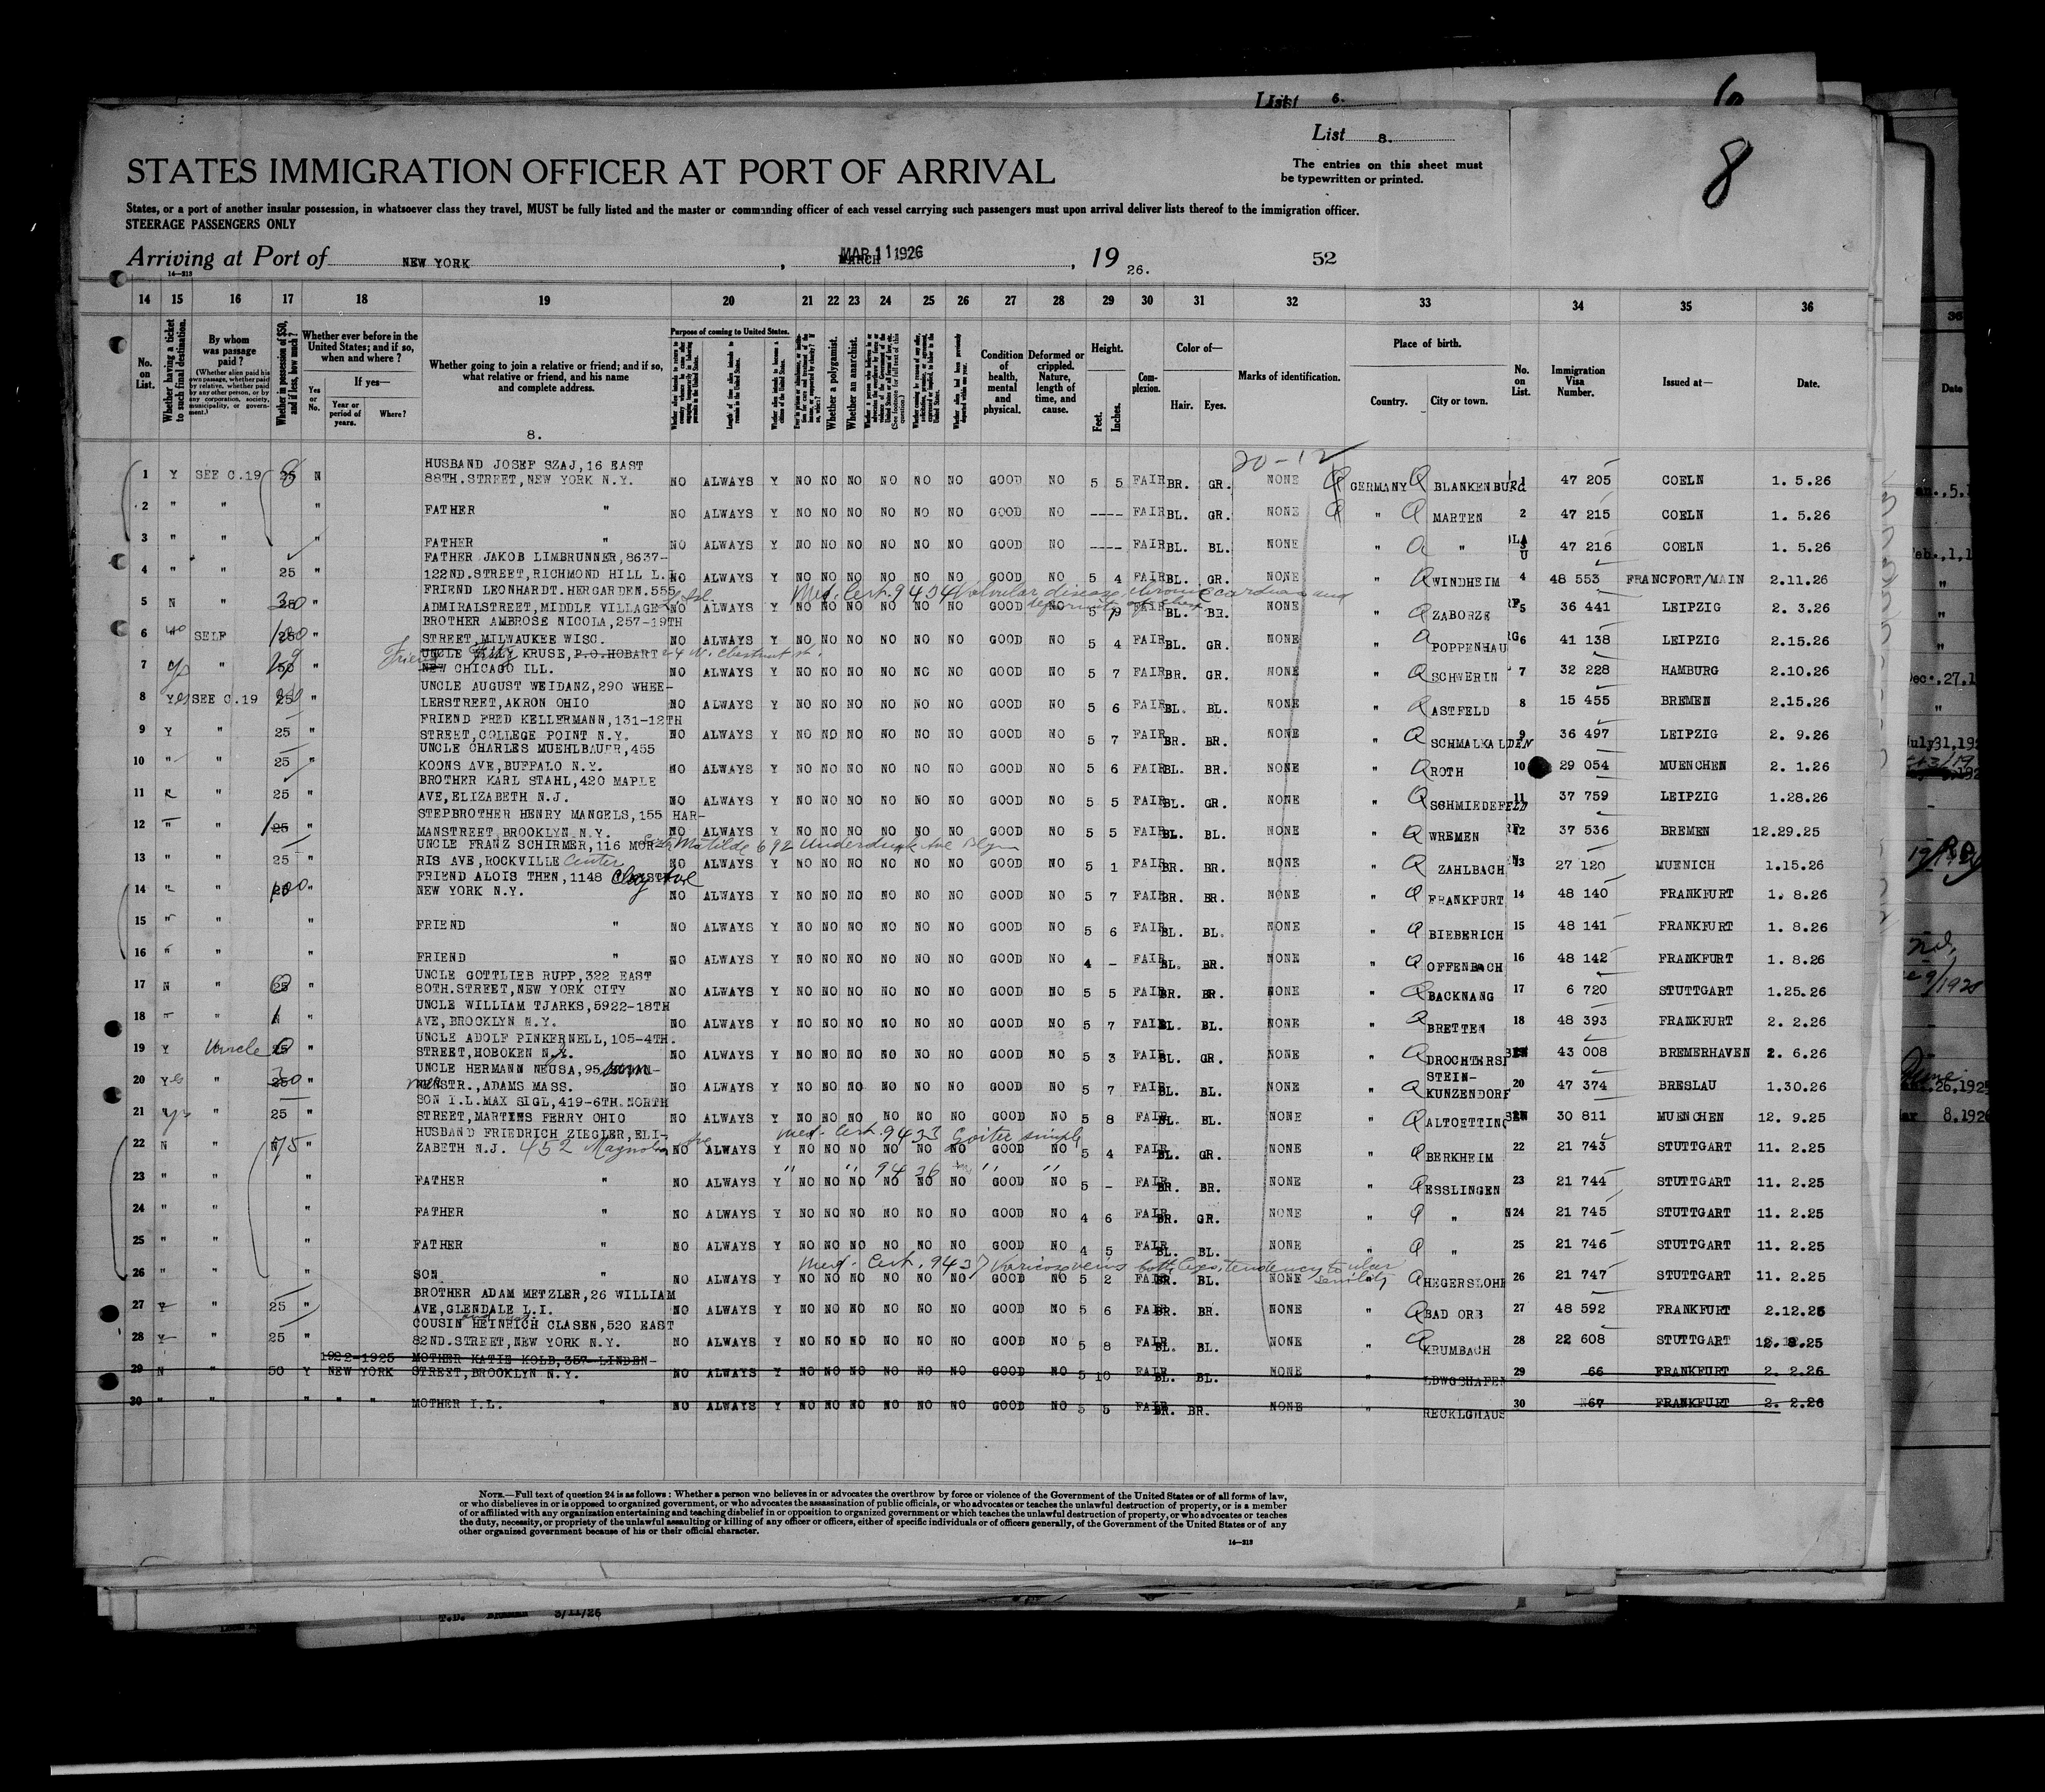 List 6.
6
List 8.
8
The entries on this sheet must
be typewritten or printed.
STATES IMMIGRATION OFFICER AT PORT OF ARRIVAL
States, or a port of another insular possession, in whatsoever class they travel, MUST be fully listed and the master or commanding officer of each vessel carrying such passengers must upon arrival deliver lists thereof to the immigration officer.
STEERAGE PASSENGERS ONLY
Arriving at Port of NEW YORK, MAR 11 1926, 19 26. 52
14—213
14 15 16 17 18 19 20 21 22 23 24 25 26 27 28 29 30 31 32 33 34 35 36
No. on List.
Whether having a ticket to such final destination.
By whom was passage paid?
(Whether alien paid his own passage, whether paid by relative, whether paid by any other person, or by any corporation, society, municipality, or government.)
Whether in possession of $50, and if less, how much?
Whether ever before in the United States; and if so, when and where?
Yes or No.
If yes—
Year or period of years.
Where?
Whether going to join a relative or friend; and if so, what relative or friend, and his name and complete address.
8.
Purpose of coming to United States.
Whether a polygamist.
Whether an anarchist.
Condition of health, mental and physical.
Deformed or crippled. Nature, length of time, and cause.
Height.
Feet. Inches.
Complexion.
Color of—
Hair. Eyes.
Marks of identification.
Place of birth.
Country. City or town.
No. on List.
Immigration Visa Number.
Issued at—
Date.
20-12
HUSBAND JOSEF SZAJ,16 EAST
1 Y SEE C.19 25 8 N 88TH.STREET,NEW YORK N.Y. NO ALWAYS Y NO NO NO NO NO NO GOOD NO 5 5 FAIR BR. GR. NONE GERMANY BLANKENBURG 1 47 205 COELN 1. 5.26
2 " " " FATHER " NO ALWAYS Y NO NO NO NO NO NO GOOD NO ---- FAIR BL. GR. NONE " MARTEN 2 47 215 COELN 1. 5.26
3 " " " FATHER " NO ALWAYS Y NO NO NO NO NO NO GOOD NO ---- FAIR BL. BL. NONE " " 3 47 216 COELN 1. 5.26
FATHER JAKOB LIMBRUNNER,8637-
4 " " 25 " 122ND.STREET,RICHMOND HILL L.I. NO ALWAYS Y NO NO NO NO NO NO GOOD NO 5 4 FAIR BL. GR. NONE " WINDHEIM 4 48 553 FRANCFORT/MAIN 2.11.26
FRIEND LEONHARDT.HERGARDEN.555 Med. Cert. 9434 Valvular disease, chronic cardiac and
5 N " 250 " ADMIRALSTREET,MIDDLE VILLAGE L. Isl. NO ALWAYS Y NO NO NO NO NO NO GOOD NO deformity of chest 5 9 FAIR BL. BR. NONE " ZABORZE 5 36 441 LEIPZIG 2. 3.26
BROTHER AMBROSE NICOLA,257-19TH
6 " SELF 250 " STREET,MILWAUKEE WISC. NO ALWAYS Y NO NO NO NO NO NO GOOD NO 5 4 FAIR BL. GR. NONE " POPPENHAU 6 41 138 LEIPZIG 2.15.26
Friend UNCLE WILLY KRUSE,P.O.HOBART 24 N. Chestnut st.
7 " " NEW CHICAGO ILL. NO ALWAYS Y NO NO NO NO NO NO GOOD NO 5 7 FAIR BR. GR. NONE " SCHWERIN 7 32 228 HAMBURG 2.10.26
UNCLE AUGUST WEIDANZ,290 WHEE-
8 Yes SEE C.19 250 " LERSTREET,AKRON OHIO NO ALWAYS Y NO NO NO NO NO NO GOOD NO 5 6 FAIR BL. BL. NONE " ASTFELD 8 15 455 BREMEN 2.15.26
FRIEND FRED KELLERMANN,131-12TH
9 Y " 25 " STREET,COLLEGE POINT N.Y. NO ALWAYS Y NO NO NO NO NO NO GOOD NO 5 7 FAIR BR. BR. NONE " SCHMALKALDEN 9 36 497 LEIPZIG 2. 9.26
UNCLE CHARLES MUEHLBAUER,455
10 " " 25 " KOONS AVE,BUFFALO N.Y. NO ALWAYS Y NO NO NO NO NO NO GOOD NO 5 6 FAIR BL. BR. NONE " ROTH 10 29 054 MUENCHEN 2. 1.26
BROTHER KARL STAHL,420 MAPLE
11 " 25 " AVE,ELIZABETH N.J. NO ALWAYS Y NO NO NO NO NO NO GOOD NO 5 5 FAIR BL. GR. NONE " SCHMIEDEFELD 11 37 759 LEIPZIG 1.28.26
STEPBROTHER HENRY MANGELS,155 HAR-
12 " " 25 " MANSTREET,BROOKLYN N.Y. NO ALWAYS Y NO NO NO NO NO NO GOOD NO 5 5 FAIR BL. BL. NONE " WREMEN 12 37 536 BREMEN 12.29.25
UNCLE FRANZ SCHIRMER,116 MOR- Matilde 692
13 " " 25 " RIS AVE,ROCKVILLE Center NO ALWAYS Y NO NO NO NO NO NO GOOD NO 5 1 FAIR BR. BR. NONE " ZAHLBACH 13 27 120 MUENICH 1.15.26
FRIEND ALOIS THEN,1148 Clay Ave
14 " " 25 100 " NEW YORK N.Y. NO ALWAYS Y NO NO NO NO NO NO GOOD NO 5 7 FAIR BR. BR. NONE " FRANKFURT 14 48 140 FRANKFURT 1. 8.26
15 " " " FRIEND " NO ALWAYS Y NO NO NO NO NO NO GOOD NO 5 6 FAIR BL. BL. NONE " BIEBERICH 15 48 141 FRANKFURT 1. 8.26
16 " " " FRIEND " NO ALWAYS Y NO NO NO NO NO NO GOOD NO 4 - FAIR BL. BR. NONE " OFFENBACH 16 48 142 FRANKFURT 1. 8.26
UNCLE GOTTLIEB RUPP,322 EAST
17 N " 25 " 80TH.STREET,NEW YORK CITY NO ALWAYS Y NO NO NO NO NO NO GOOD NO 5 5 FAIR BR. BR. NONE " BACKNANG 17 6 720 STUTTGART 1.25.26
UNCLE WILLIAM TJARKS,5922-18TH
18 " " " AVE,BROOKLYN N.Y. NO ALWAYS Y NO NO NO NO NO NO GOOD NO 5 7 FAIR BL. BL. NONE " BRETTEN 18 48 393 FRANKFURT 2. 2.26
UNCLE ADOLF PINKERNELL,105-4TH.
19 Y Uncle 25 " STREET,HOBOKEN N.J. NO ALWAYS Y NO NO NO NO NO NO GOOD NO 5 3 FAIR BL. GR. NONE " DROCHTERSEN 19 43 008 BREMERHAVEN 2. 6.26
UNCLE HERMANN NEUSA,95
20 Yes " 250 " STR.,ADAMS MASS. NO ALWAYS Y NO NO NO NO NO NO GOOD NO 5 7 FAIR BL. BL. NONE " STEIN-KUNZENDORF 20 47 374 BRESLAU 1.30.26
SON I.L.MAX SIGL,419-6TH.NORTH
21 " 25 " STREET,MARTINS FERRY OHIO NO ALWAYS Y NO NO NO NO NO NO GOOD NO 5 8 FAIR BL. BL. NONE " ALTOETTING 21 30 811 MUENCHEN 12. 9.25
HUSBAND FRIEDRICH ZIEGLER,ELI- Med. Cert. 9433 Goiter simple
22 N " 75 " ZABETH N.J. 452 Magnolia Ave NO ALWAYS Y NO NO NO NO NO NO GOOD NO 5 4 FAIR BL. GR. NONE " BERKHEIM 22 21 743 STUTTGART 11. 2.25
" " 9436 " "
23 " " " FATHER " NO ALWAYS Y NO NO NO NO NO NO GOOD NO 5 - FAIR BR. BR. NONE " ESSLINGEN 23 21 744 STUTTGART 11. 2.25
24 " " " FATHER " NO ALWAYS Y NO NO NO NO NO NO GOOD NO 4 6 FAIR BR. GR. NONE " " 24 21 745 STUTTGART 11. 2.25
25 " " " FATHER " NO ALWAYS Y NO NO NO NO NO NO GOOD NO 4 5 FAIR BL. BL. NONE " " 25 21 746 STUTTGART 11. 2.25
Med. Cert. 9437 Varicose veins both legs, tendency to ulcer senility
26 " " " SON " NO ALWAYS Y NO NO NO NO NO NO GOOD NO 5 2 FAIR BR. BL. NONE " HEGERSLOHE 26 21 747 STUTTGART 11. 2.25
BROTHER ADAM METZLER,26 WILLIAM
27 Y " 25 " AVE,GLENDALE L.I. NO ALWAYS Y NO NO NO NO NO NO GOOD NO 5 6 FAIR BR. BR. NONE " BAD ORB 27 48 592 FRANKFURT 2.12.26
COUSIN HEINRICH CLASEN,520 EAST
28 Y " 25 " 82ND.STREET,NEW YORK N.Y. NO ALWAYS Y NO NO NO NO NO NO GOOD NO 5 8 FAIR BL. BL. NONE " KRUMBACH 28 22 608 STUTTGART
1922-1925 MOTHER KATIE KOLB,357 LINDEN-
29 N " 50 Y NEW YORK STREET,BROOKLYN N.Y. NO ALWAYS Y NO NO NO NO NO NO GOOD NO 5 10 FAIR BL. BL. NONE " LDWGSHAFEN 29 66 FRANKFURT 2. 2.26
30 " " " " " MOTHER I.L. " NO ALWAYS Y NO NO NO NO NO NO GOOD NO 5 5 FAIR BR. BR. NONE " RECKLGHAUS 30 67 FRANKFURT 2. 2.26
NOTE.—Full text of question 24 is as follows: Whether a person who believes in or advocates the overthrow by force or violence of the Government of the United States or of all forms of law,
or who disbelieves in or is opposed to organized government, or who advocates the assassination of public officials, or who advocates or teaches the unlawful destruction of property, or is a member
of or affiliated with any organization entertaining and teaching disbelief in or opposition to organized government or which teaches the unlawful destruction of property, or who advocates or teaches
the duty, necessity, or propriety of the unlawful assaulting or killing of any officer or officers, either of specific individuals or of officers generally, of the Government of the United States or of any
other organized government because of his or their official character.
14—213
3/11/26